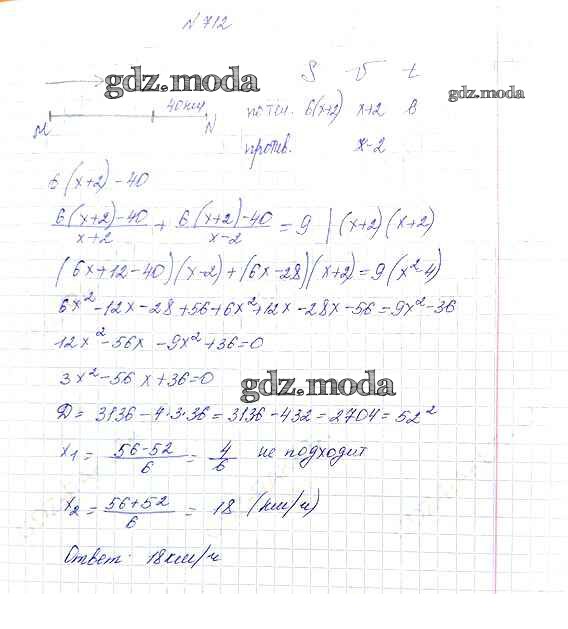 N 712
gdz.moda
S V t
gdz.moda
40 км
M N
по теч. 6(x+2) x+2 6
против. x-2
6(x+2)-40
6(x+2)-40/x+2 + 6(x+2)-40/x-2 = 9 | (x+2)(x+2)
(6x+12-40)(x-2)+(6x-28)(x+2)=9(x²-4)
6x²-12x-28+56+6x²+12x-28x-56=9x²-36
12x²-56x-9x²+36=0
3x²-56x+36=0
gdz.moda
D= 3136-4·3·36=3136-432=2704=52²
x₁= 56-52/6 = 4/6 не подходит
x₂= 56+52/6 = 18 (км/ч)
Ответ: 18км/ч
gdz.moda